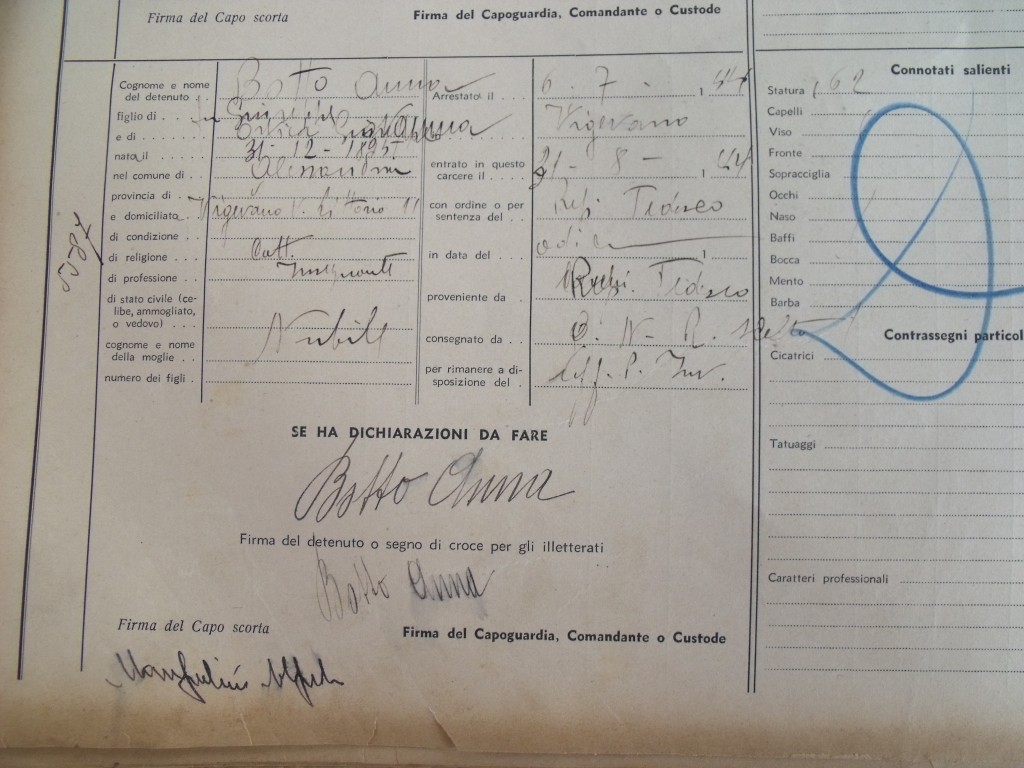 Firma del Capo scorta
Firma del Capoguardia, Comandante o Custode
Cognome e nome del detenuto . Botto Anna
figlio di . . . fu Giuseppe
e di . . . . .
nato il . . . . . 31 - 12 - 1895
nel comune di . . Alessandria
provincia di . .
e domiciliato . . Vigevano V. Littorio 11
di condizione . .
di religione . . . Catt.
di professione . . Insegnante
di stato civile (ce-
libe, ammogliato,
o vedovo) . . . Nubile
cognome e nome
della moglie . .
numero dei figli .
Arrestato il . . . 6 - 7 - , 44
Vigevano
entrato in questo
carcere il . . . . 21 - 8 - , 44
con ordine o per
sentenza del . . Tedesco
in data del . . . ,
proveniente da . Tedesco
consegnato da . .
per rimanere a di-
sposizione del .
SE HA DICHIARAZIONI DA FARE
Botto Anna
Firma del detenuto o segno di croce per gli illetterati
Botto Anna
Firma del Capo scorta
Firma del Capoguardia, Comandante o Custode
Connotati salienti
Statura 162
Capelli
Viso
Fronte
Sopracciglia
Occhi
Naso
Baffi
Bocca
Mento
Barba
Contrassegni particol
Cicatrici
Tatuaggi
Caratteri professionali